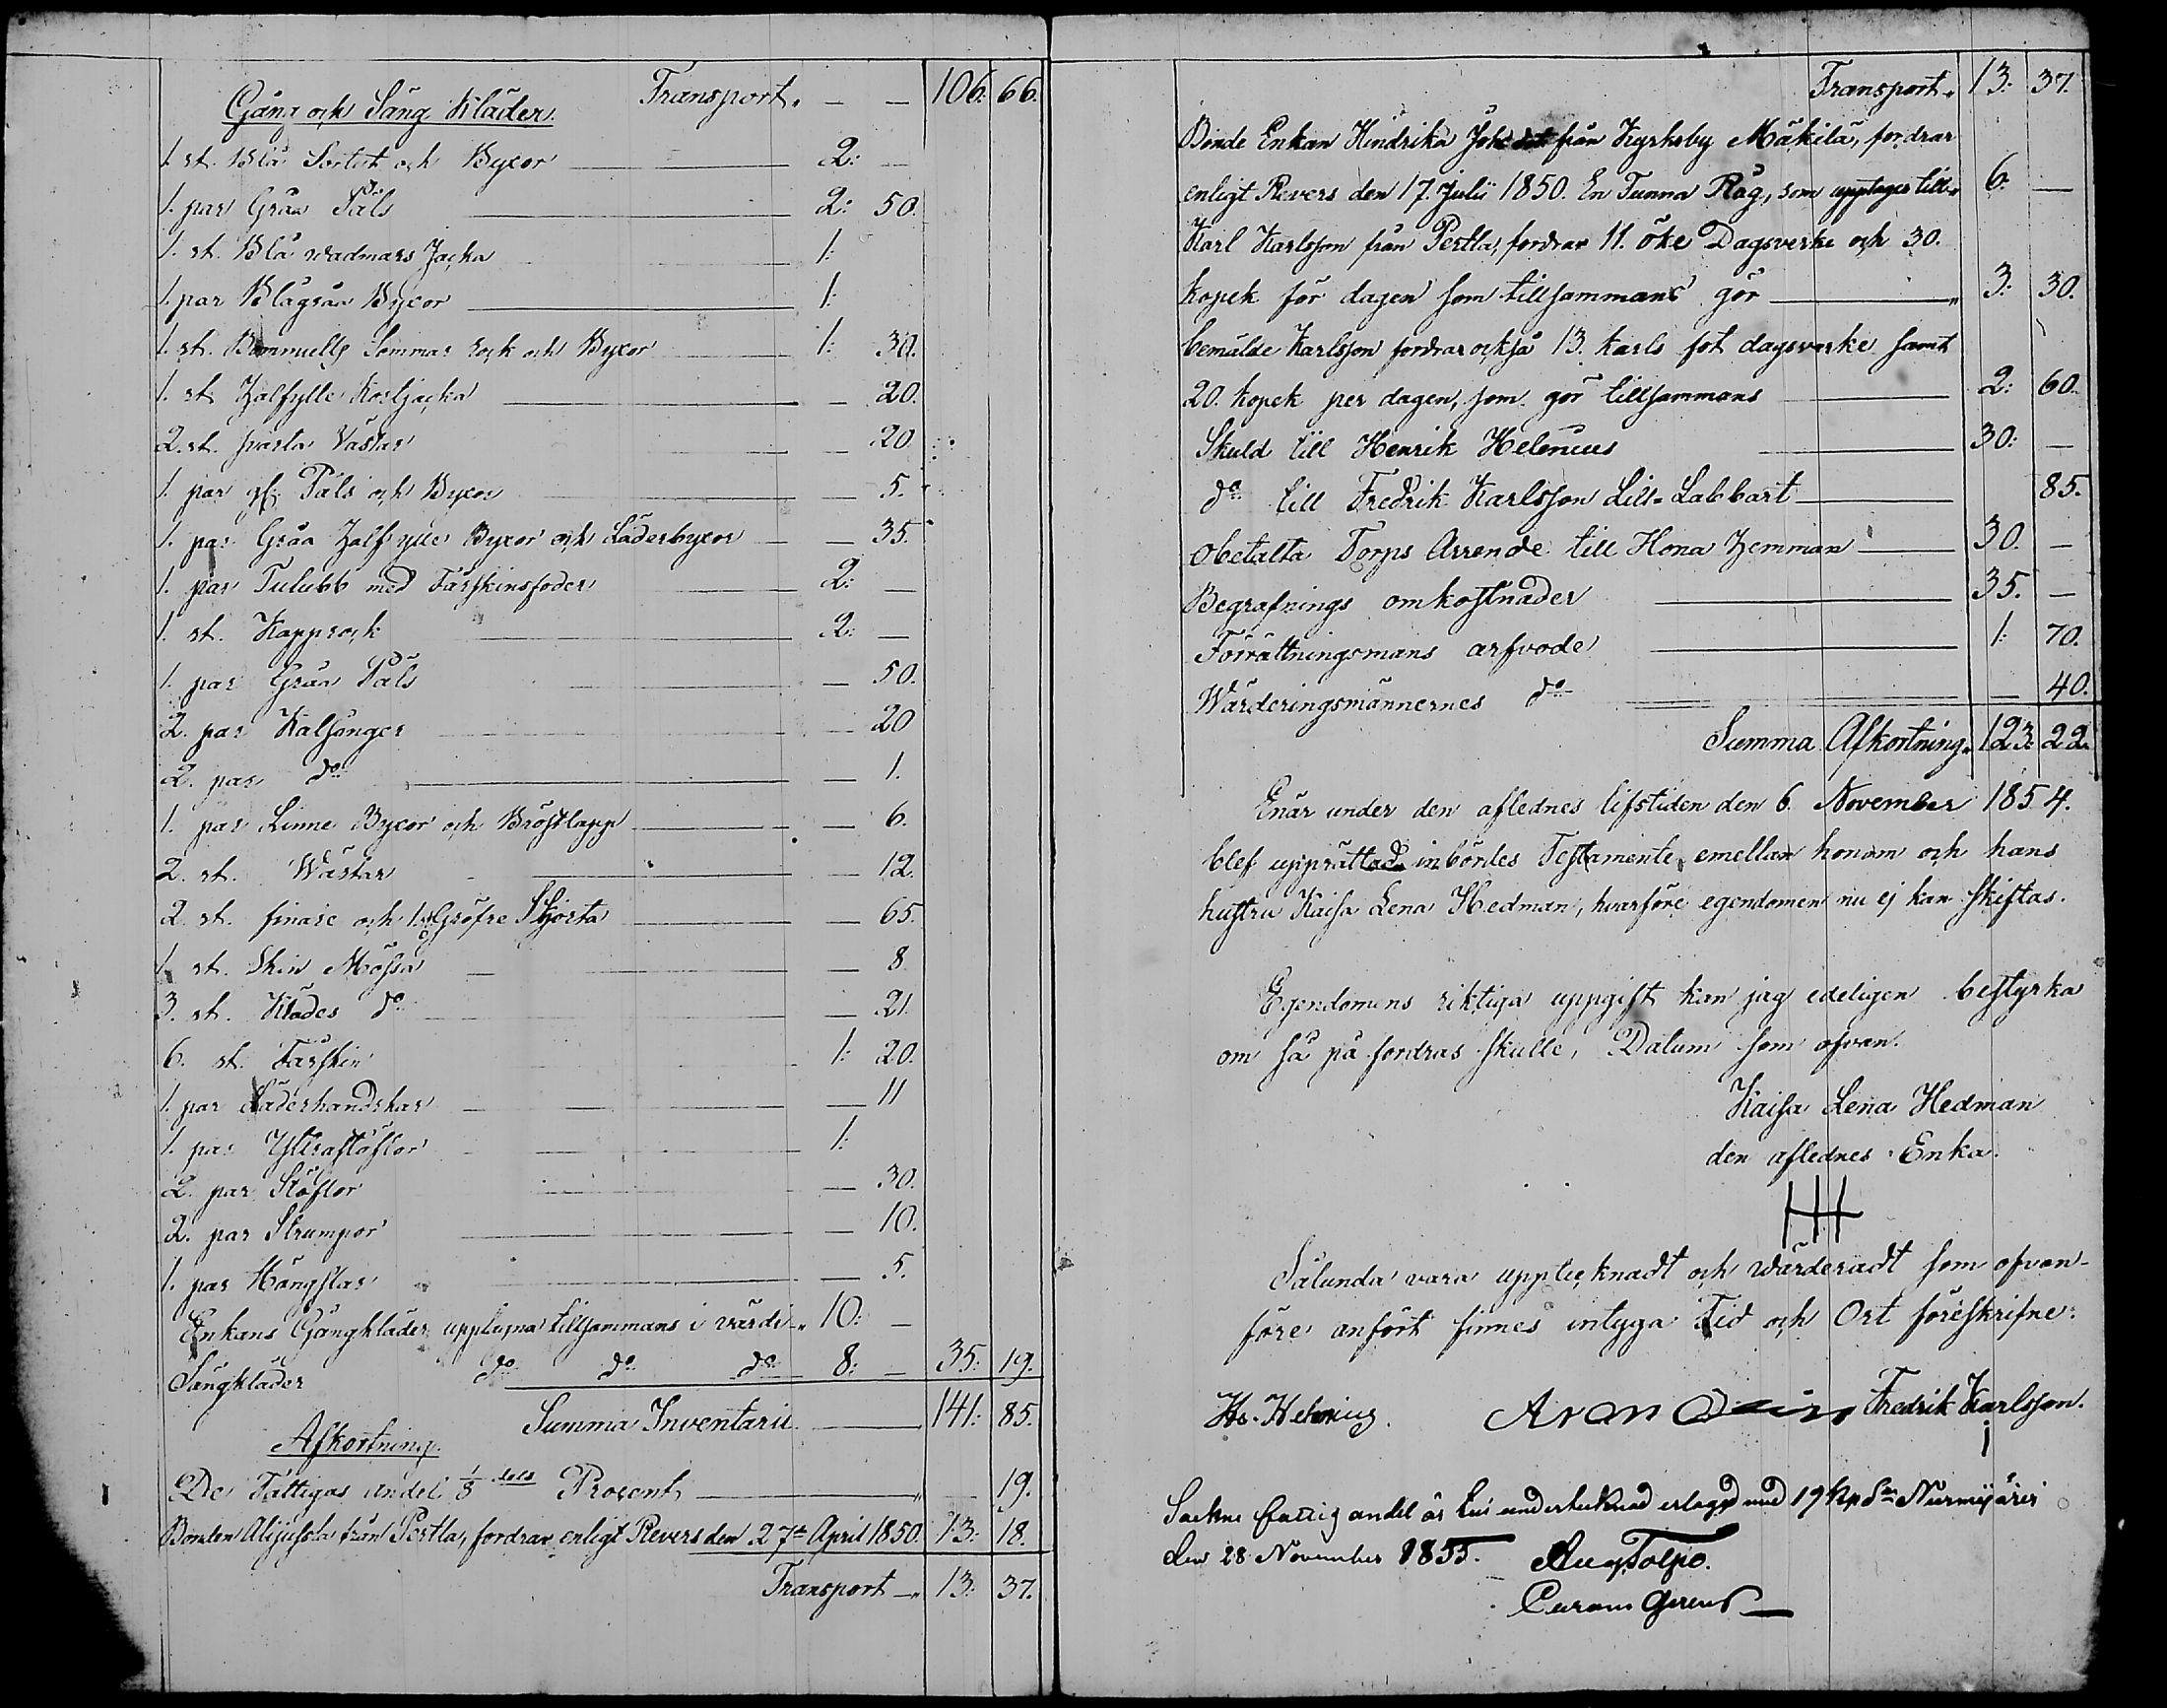 Transport. — — 106. 66.
Gång och Säng Kläder.
1. st. Blå Sortut och Byxor — 2: —
1. par Gråa Päls — 2: 50.
1. st. Blå wadmars Jacka — 1:
1. par Blågråa Byxor — 1:
1. st. Bommulls Sommar rock och Byxor — 1: 30.
1. st. Halfylle Kostjacka — — 20.
2. st. Västar — — 20
1. par Päls och Byxor — — 5.
1. par Gråa Halfylle Byxor och Läderbyxor — — 35.
1. par Tulubb med Fårskinsfoder — 2: —
1. st. Kapprock — 2: —
1. par Gråa Päls — — 50.
2. par Kalsonger — — 20
2. par do — — 1.
1. par Linne Byxor och Bröstlapp — — 6.
2. st. Wästar — — 12.
2. st. finare och 1. st Gröfre Skjorta — — 65.
1. st. Skin Mössa — — 8
3. st. Klädes do — — 21.
6. st. Fårskin — 1: 20.
1. par Läderhandskar — — 11
1. par Yttrastöflor — 1:
2. par Stöflor — — 30.
2. par Strumpor — — 10.
1. par Hängslar — — 5.
Enkans Gångkläder upptagna tillsammans i värde „ 10: —
Sängkläder do do do 8: — 35: 19.
Summa Inventarii — 141: 85.
Afkortning.
De Fattigas andel 1/8 dels Procent — „ — 19.
Bonden från Pertla, fordrar enligt Revers den 27de April 1850. 13: 18.
Transport — „ 13: 37.
Transport „ 13: 37.
Bonde Enkan Hindrika från Kyrkoby Mäkilä, fordrar
enligt Revers den 17. Julii 1850. En Tunna Råg, som upptages till „ 6: —
Karl Karlsson från Pertla, fordrar 11. öke Dagsverke och 30.
kopek för dagen som tillsammans gör — „ 3: 30.
bemälde Karlsson fordrar också 13. karls fot dagsverke samt
20. kopek per dagen, som gör tillsammans — 2: 60.
Skuld till Henrik Helenius — 30: —
do till Fredrik Karlsson Lill-Labbart — 85.
Obetalta Torps Arrende till Hona Hemman — 30. —
Begrafnings omkostnader — 35. —
Förrättningsmans arfvode — 1: 70.
Wärderingsmännernes do — — 40.
Summa Afkortning „ 123: 22.
Enär under den aflednes lifstiden den 6. November 1854.
blef upprättad inbördes Testamente emellan honom och hans
hustru Kaisa Lena Hedman, hvarföre egendomen nu ej kan skiftas.
Egendomens riktiga uppgift kan jag edeligen bestyrka
om så på fordras skulle, Datum som ofvan.
Kaisa Lena Hedman
den aflednes Enka.
Sålunda vara upptecknadt och wärderadt som ofvan-
före anfört finnes intyga Tid och Ort föreskrifne.
Hr. Helenius. Fredrik Karlsson.
fattig andel är undertecknad erlagd med 19 kop Sr Nurmijärvi
den 28 November 1855. Aug. Tolpo.
Curam Gerens